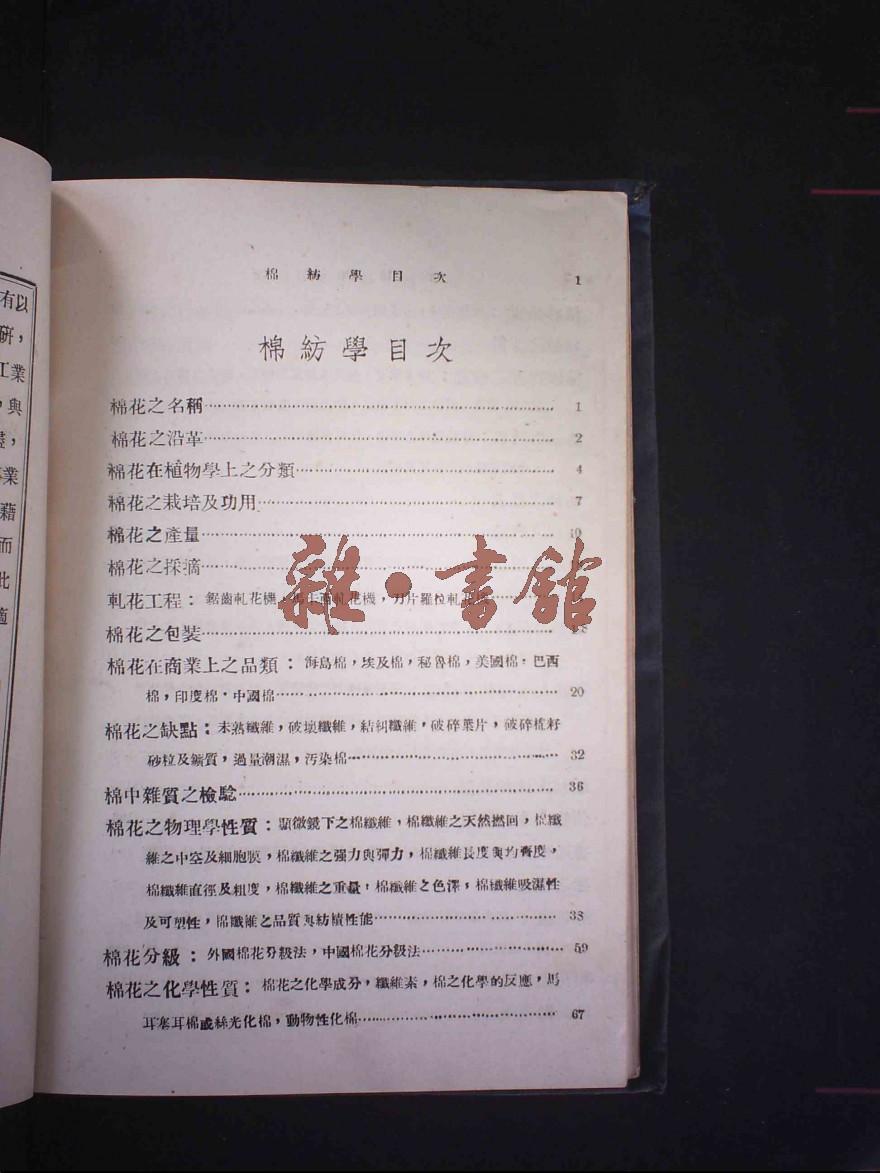 有以
研，
工業
，與
業
藉
而
此
適
棉紡學目次 1
棉紡學目次
棉花之名稱 1
棉花之沿革 2
棉花在植物學上之分類 4
棉花之栽培及功用 7
棉花之產量 10
棉花之採摘
軋花工程：鋸齒軋花機，刀片羅拉軋花機
棉花之包裝
棉花在商業上之品類：海島棉，埃及棉，秘魯棉，美國棉，巴西
棉，印度棉，中國棉 20
棉花之缺點：未熟纖維，破壞纖維，結糾纖維，破碎葉片，破碎棉籽
砂粒及鑛質，過量潮濕，污染棉 32
棉中雜質之檢驗 36
棉花之物理學性質：顯微鏡下之棉纖維，棉纖維之天然撚回，棉纖
維之中空及細胞膜，棉纖維之强力與彈力，棉纖維長度與均齊度，
棉纖維直徑及粗度，棉纖維之重量，棉纖維之色澤，棉纖維吸濕性
及可塑性，棉纖維之品質與紡績性能 38
棉花分級：外國棉花分級法，中國棉花分級法 59
棉花之化學性質：棉花之化學成分，纖維素，棉之化學的反應，馬
耳塞耳棉或絲光化棉，動物性化棉 67
雜·書館